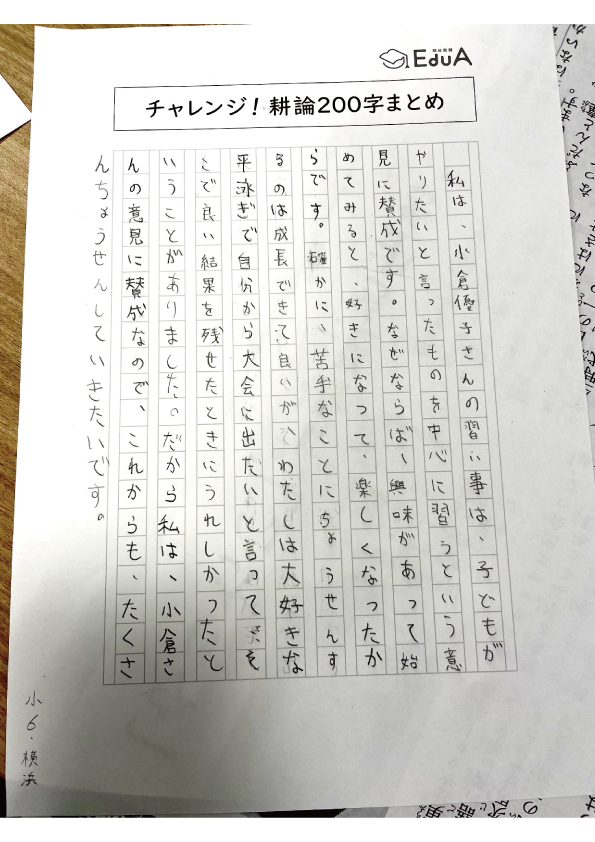 朝日新聞
EduA
チャレンジ！耕論200字まとめ
私は、小倉優子さんの習い事は、子どもが
やりたいと言ったものを中心に習うという意
見に賛成です。なぜならば、興味があって始
めてみると、好きになって、楽しくなったか
らです。確かに、苦手なことにちょうせんす
るのは成長できて良いが、わたしは大好きな
平泳ぎで自分から大会に出たいと言って
こで良い結果を残せたときにうれしかったと
いうことがありました。だから私は、小倉さ
んの意見に賛成なので、これからも、たくさ
んちょうせんしていきたいです。
小6・横浜